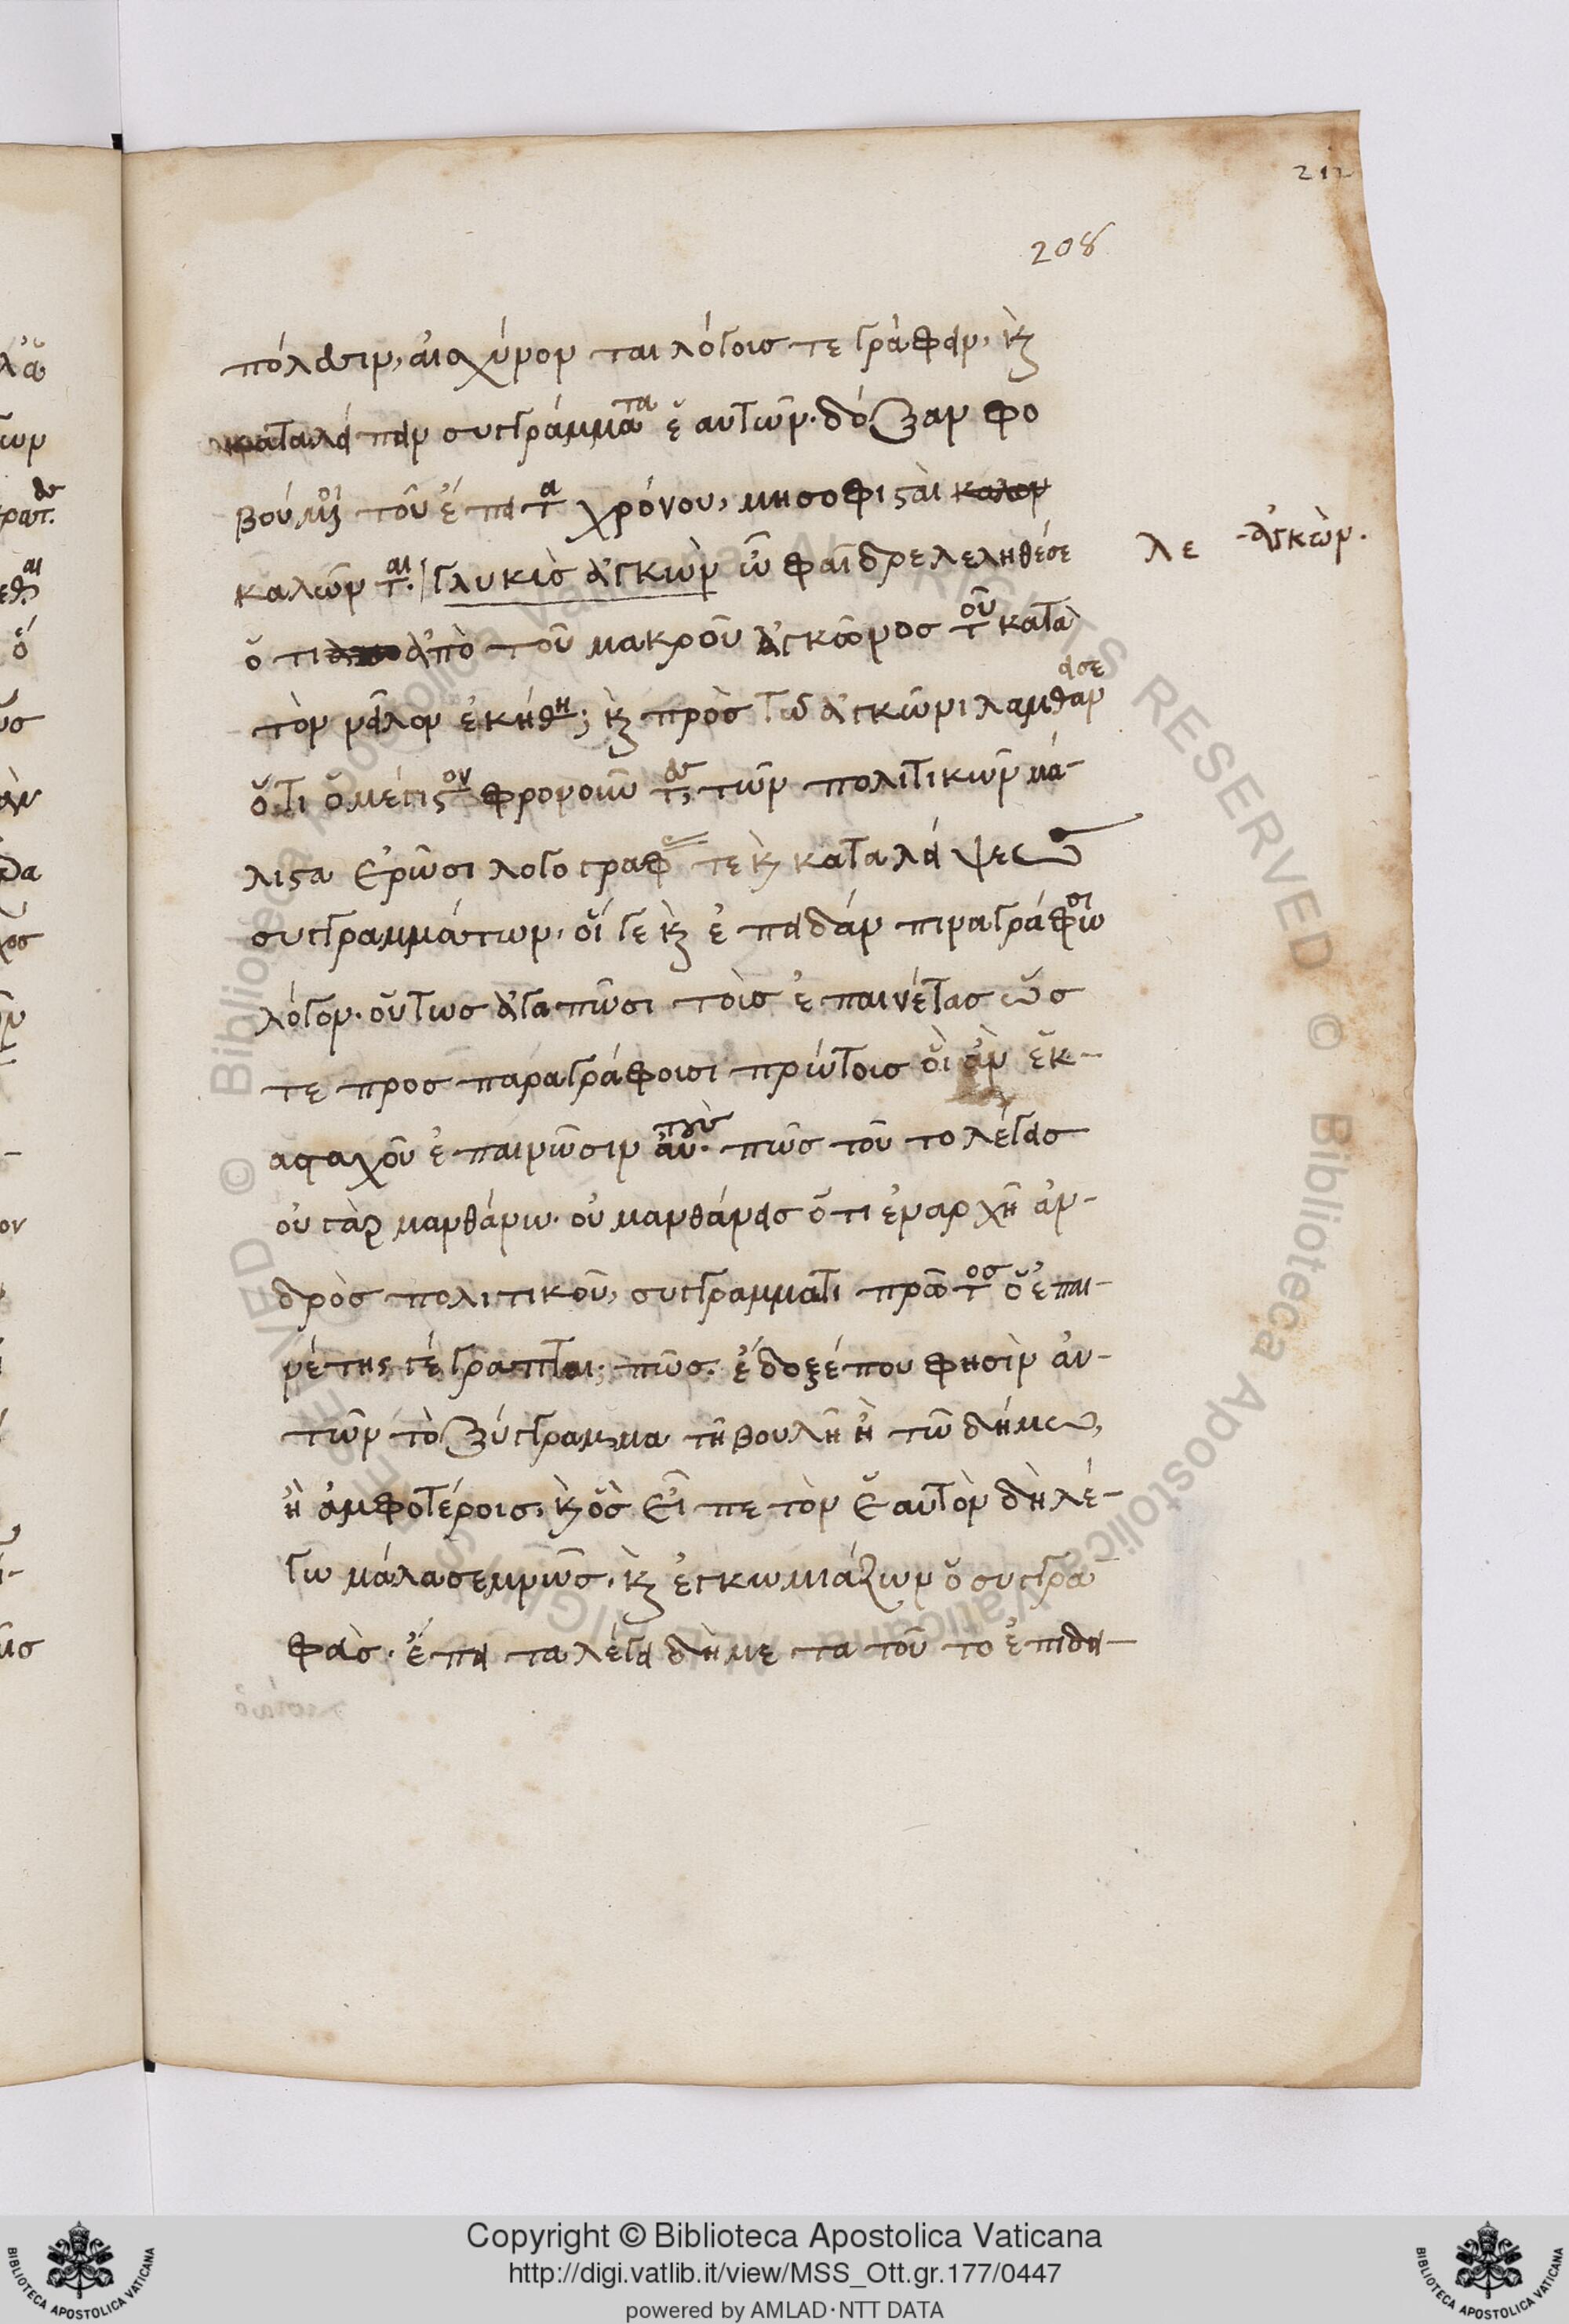 212
208
πόλεσιν, αἰσχύνονται λόγοις τε γράφειν, καὶ
καταλείπειν συγγράμματα ἑαυτῶν. δόξαν φο
βούμενοι τοῦ ἔπειτα χρόνου, μὴ σοφισταὶ καλον
καλῶνται. γλυκὺς ἀγκὼν ὦ φαῖδρε λεληθέσε
ὅτι ἀπὸ τοῦ μακροῦ ἀγκῶνος τοῦ κατὰ
τὸν νεῖλον ἐκλήθη; καὶ πρὸς τῷ ἀγκῶνι λανθάνει σε
ὅτι ὁ μέγιστον φρονοῦντες τῶν πολιτικῶν μά-
λιστα ἐρῶσι λογογραφίας τε καὶ καταλείψεως
συγγραμμάτων. οἵ γε καὶ ἐπειδάν τινα γράφωσι
λόγον. οὕτως ἀγαπῶσι τοὺς ἐπαινέτας ὥς
τε προσπαραγράφουσι πρώτοις οἳ ἂν ἑκ-
ασταχοῦ ἐπαινῶσιν αὐτούς. πῶς τοῦτο λέγεις
οὐ γὰρ μανθάνω. οὐ μανθάνεις ὅτι ἐν ἀρχῇ ἀν-
δρὸς πολιτικοῦ, συγγράμματι πρῶτος ὁ ἐπαι-
νέτης γέγραπται; πῶς. ἔδοξέ που φησὶν αὐ-
τῶν τὸ ξύγγραμμα τῇ βουλῇ ἢ τῷ δήμω,
ἢ ἀμφοτέροις. καὶ ὃς εἶπε τὸν ἑαυτὸν δὴ λέ-
γων μάλα σεμνῶς. καὶ ἐγκωμιάζων ὁ συγγρα
φεὺς. ἔπειτα λέγει δὴ μετὰ τοῦτο ἐπιδει-
λε ἀγκὼν.
Copyright © Biblioteca Apostolica Vaticana
http://digi.vatlib.it/view/MSS_Ott.gr.177/0447
powered by AMLAD·NTT DATA
BIBLIOTECA APOSTOLICA VATICANA
BIBLIOTECA APOSTOLICA VATICANA